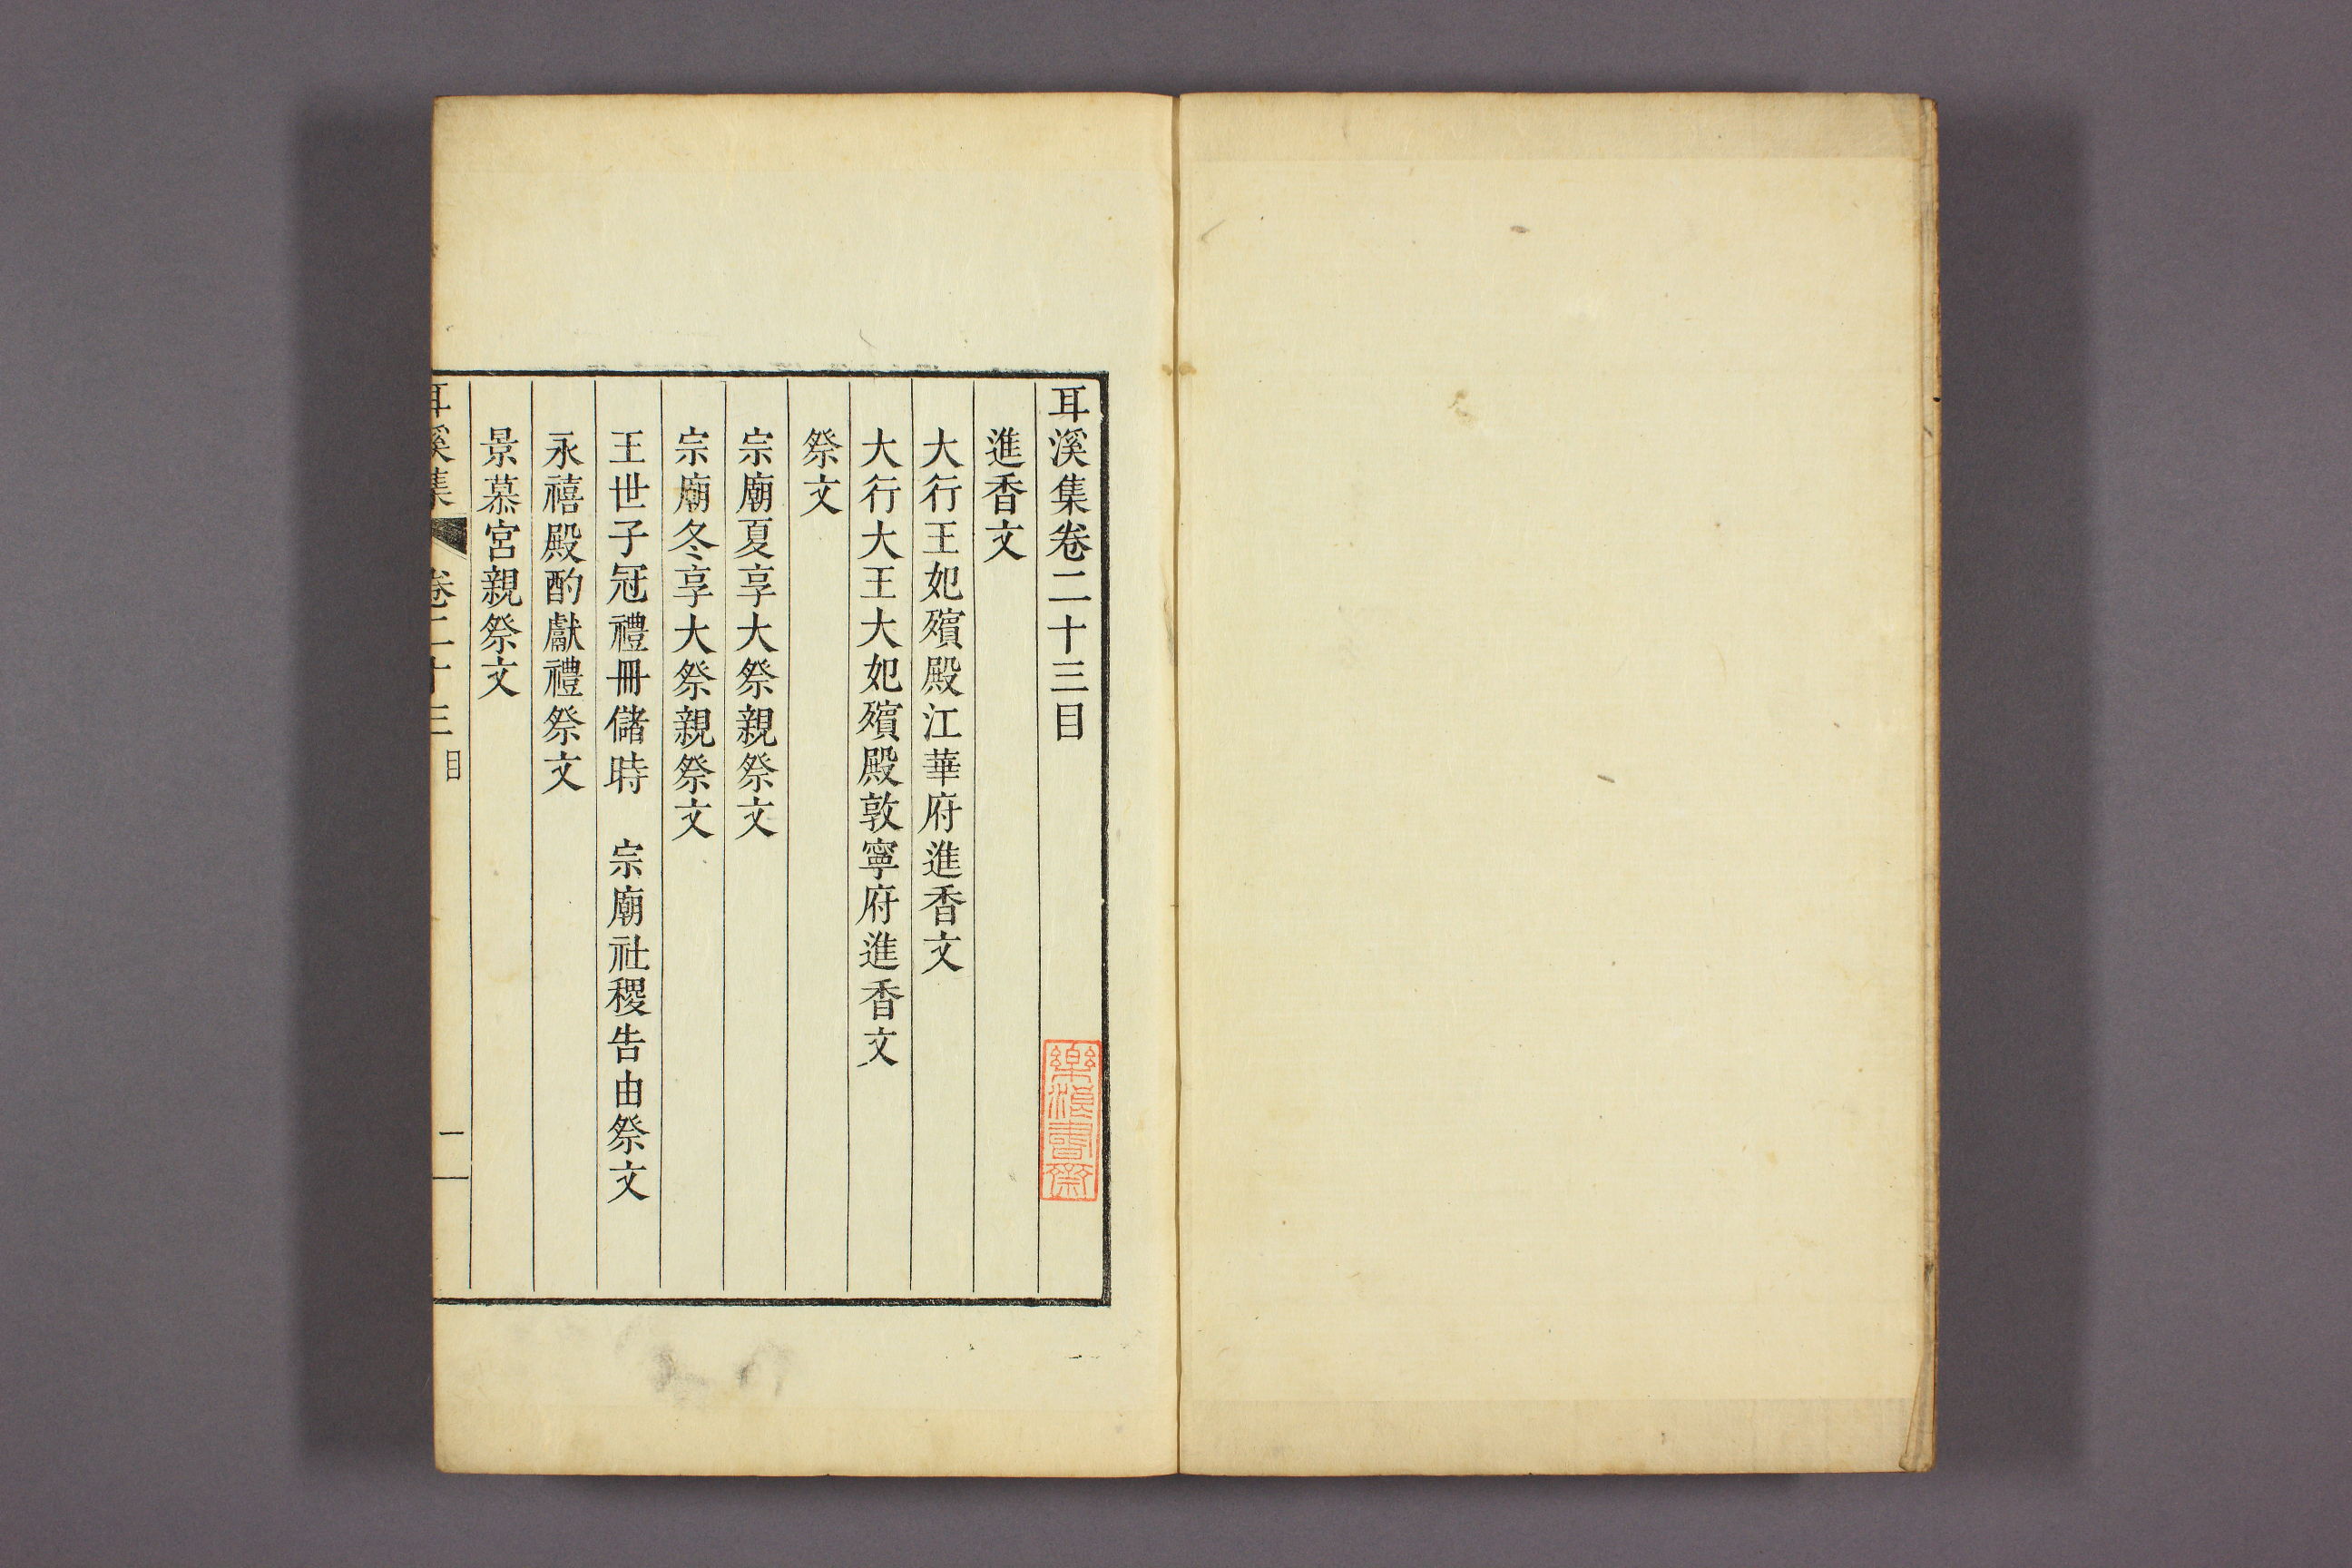 耳溪集卷二十三目
進香文
大行王妃殯殿江華府進香文
大行大王大妃殯殿敦寧府進香文
祭文
宗廟夏享大祭親祭文
宗廟冬享大祭親祭文
王世子冠禮冊儲時　宗廟社稷告由祭文
永禧殿酌獻禮祭文
景慕宮親祭文
耳溪集　卷二十三　目　一